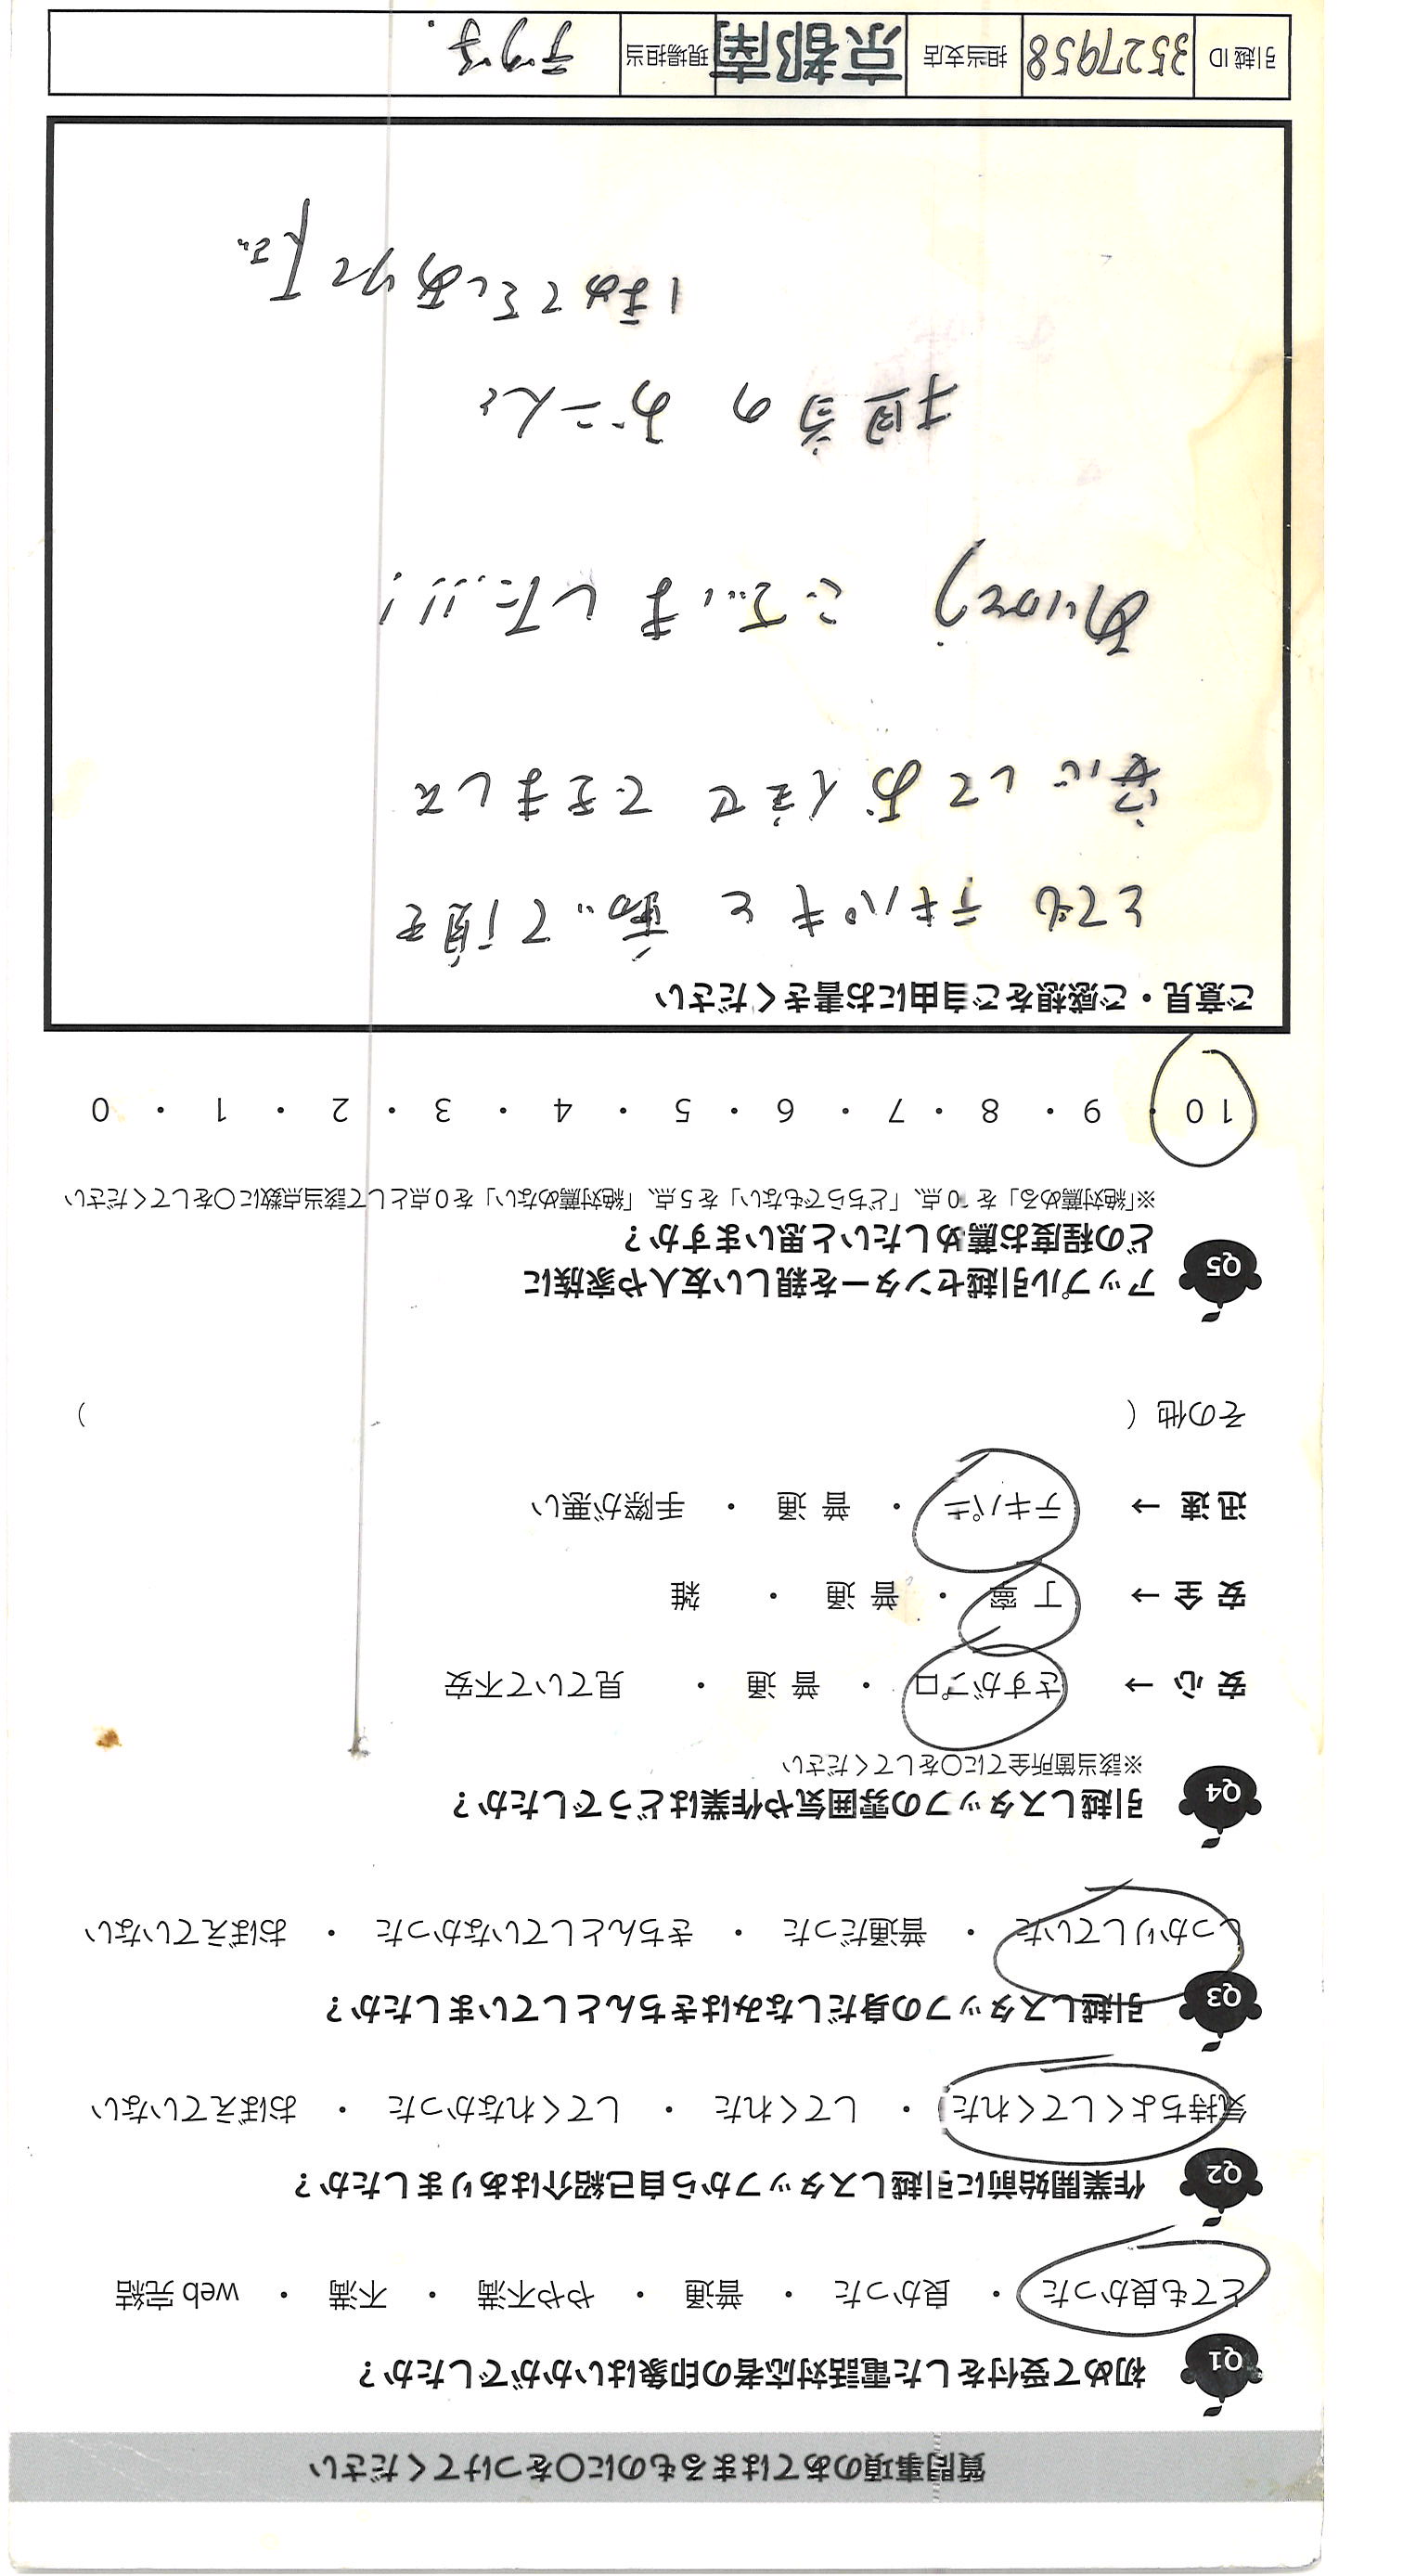 質問事項のあてはまるものに〇をつけてください
Q1 初めて受付をした電話対応者の印象はいかがでしたか？
とても良かった ・ 良かった ・ 普通 ・ やや不満 ・ 不満 ・ web 完結
Q2 作業開始前に引越しスタッフから自己紹介はありましたか？
気持ちよくしてくれた ・ してくれた ・ してくれなかった ・ おぼえていない
Q3 引越しスタッフの身だしなみはきちんとしていましたか？
しっかりしていた ・ 普通だった ・ きちんとしていなかった ・ おぼえていない
Q4 引越しスタッフの雰囲気や作業はどうでしたか？
※該当箇所全てに〇をしてください
安 心 → さすがプロ ・ 普 通 ・ 見ていて不安
安 全 → 丁 寧 ・ 普 通 ・ 雑
迅 速 → テキパキ ・ 普 通 ・ 手際が悪い
その他（ ）
Q5 アップル引越センターを親しい友人や家族に
どの程度お薦めしたいと思いますか？
※「絶対薦める」を 10点、「どちらでもない」を５点、「絶対薦めない」を０点として該当点数に〇をしてください
10 ・ 9 ・ 8 ・ 7 ・ 6 ・ 5 ・ 4 ・ 3 ・ 2 ・ 1 ・ 0
ご意見・ご感想をご自由にお書きください
とても テキパキと 動いて頂き
安心して お任せ できまして
ありがとう ございました!!!
担当の
ほめてさしあげて下さい
引越ID 3527958 担当支店 京都南 現場担当